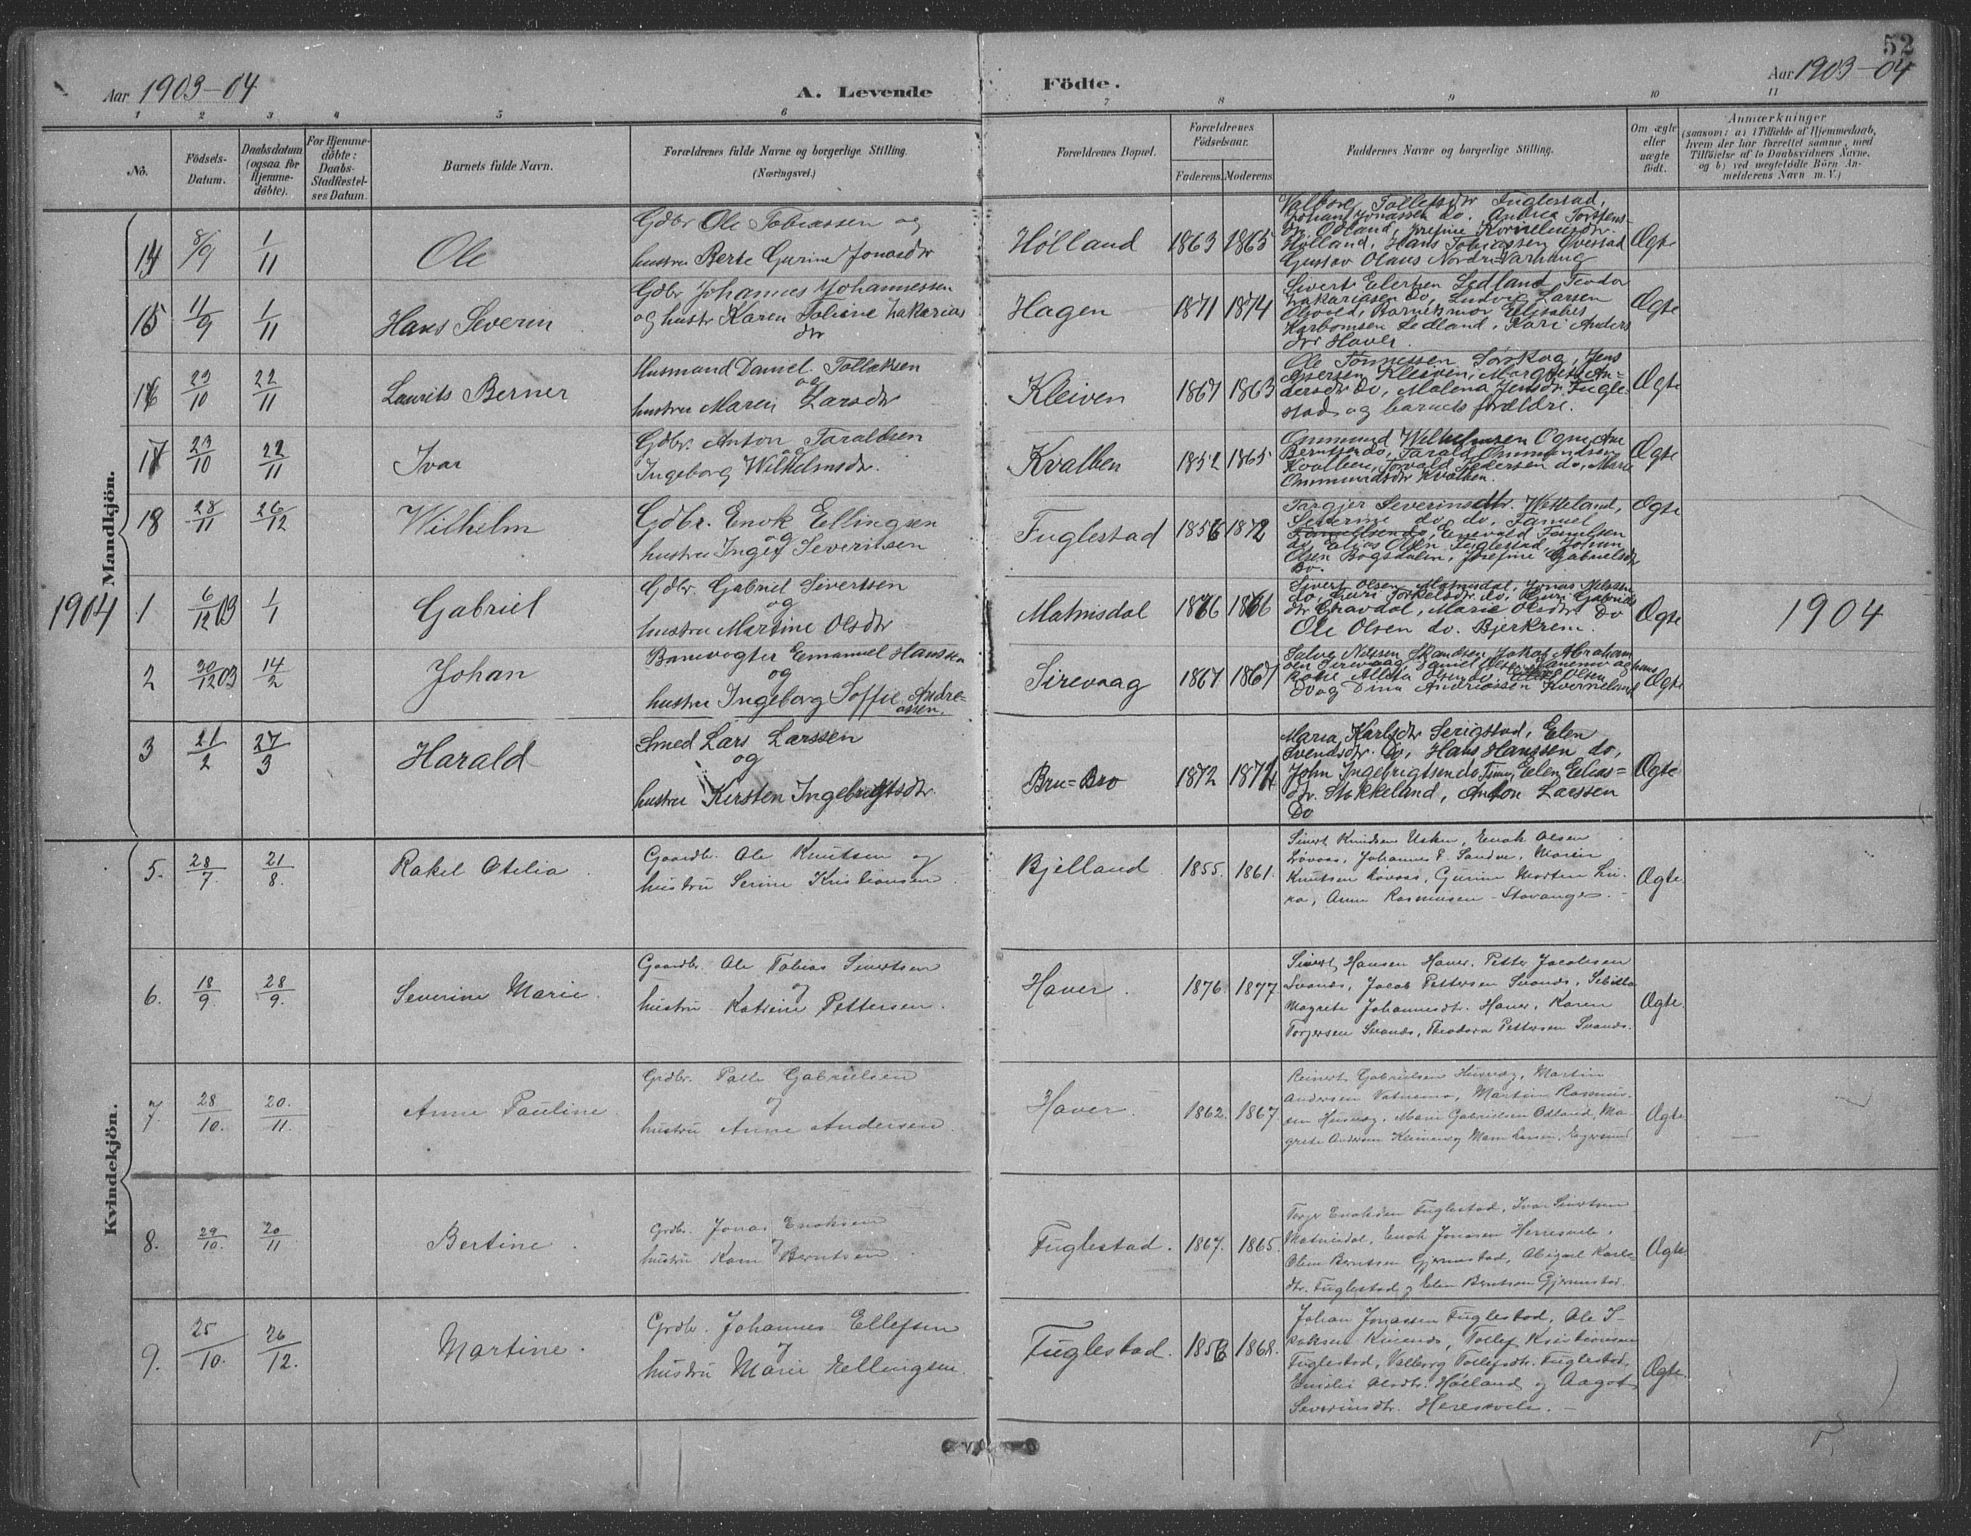 52
Aar 1903-04
A. Levende
Födte.
Aar 1903-04
1 2 3 4 5 6 7 8 9 10 11
No.
Födsels-Datum.
Daabsdatum (ogsaa for Hjemme-döbte).
For Hjemme-döbte: Daabs-Stadfæstel-ses Datum.
Barnets fulde Navn.
Forældrenes fulde Navne og borgerlige Stilling.
(Næringsvei.)
Forældrenes Bopæl.
Forældrenes Födselsaar.
Faderens. Moderens.
Faddernes Navne og borgerlige Stilling.
Om ægte eller uægte födt.
Anmærkninger
(saasom: a) i Tilfælde af Hjemmedaab,
hvem der har forrettet samme, med
Tilföielse af to Daabsvidners Navne,
og b) ved uægtefödte Börn An-
melderens Navn m. V.)
Mandkjön.
14 8/9 1/11 Ole
Gdbr Ole Tobiassen og
hustru Berte Gurine Jonasdtr
Hølland 1863 1865
Valborg Tollefsdtr Fuglestad,
Johan Jonassen do. Andrea Torstens-
dtr. Ødland, Josefine Kornelinsdtr.
Hølland, Hans Tobiassen Øvestad
Gustav Olaus Nordre Varhaug
Ægte
15 11/9 1/11 Hans Severin
Gdbr Johannes Johannessen
og hustr Karen Toline Zakarias
dtr
Hagen 1871 1874
Sivert Elertsen Ledland, Teodor
Zakariasen do, Ludvig Larsen
Ledland, Kari Anders
dtr Haver.
Ægte
16 23/10 22/11 Laurits Berner
Husmand Daniel Tollaksen
og
hustru Maren Larsdtr
Kleiven 1867 1863
Ole Tønnessen Sørskog, Jens
Kleiven, Margrete An-
dersdtr do, Malena Jensdtr. Fugle-
stad og barnets forældre.
Ægte
17 23/10 22/11 Ivar
Gdbr. Anton Taraldsen
og
Ingeborg Wilhelmsdtr.
Kvalben 1852 1865
Ommund Wilhelmsen Ogne, Ane
Berntsen do, Tarald Ommundsen
Kvalben, Torvald Pedersen do, Marie
Ommundsdtr Kvalben.
Ægte
18 28/11 26/12 Wilhelm
Gdbr. Enok Ellingsen
og
hustru Inger Severinsen
Fuglestad 1856 1872
Targjer Severinsdtr. Wetteland,
Severine do, do, Tamuel
do, Elias Olsen Fuglestad,
Olsen Bogsdalen, Josefine Gabrielsdtr
Do.
Ægte
1904
1 6/12 03 1/1 Gabriel
Gdbr. Gabriel Sivertsen
og
hustru Martine Olsdtr
Matnisdal 1866
Sivert Olsen Matnisdal, Jonas Nilssen
do, Guri Torkelsdtr do, Guri Gabriels
dtr Gravdal, Marie Olsdtr Do
Ole Olsen do. Bjerkrem.
Ægte
1904
2 30/12 03 14/2 Johan
Banevogter Emanuel Hanssen
og
hustru Ingeborg Soffie Andre-
assen.
Sirevaag 1867 1867
Salve Nilssen Jakob Abraham
sen Sirevaag, Daniel Olsen
do, Olsen
Do og Dina Andreassen Kverneland
Ægte
3 21/2 27/3 Harald
Smed Lars Larssen
og
hustru Kirsten Ingebrigtsdtr.
Bru=Bro 1872 1874
Maria Karlsdtr Serigstad, Elen
Svendsdtr. Do, Hans Hanssen do,
John Ingebrigtsen do Time, Elen Elias=
dtr. Stokkeland, Anton Larssen
Do
Ægte
Kvindekjön.
5. 28/7. 21/8. Rakel Otelia.
Gaardbr. Ole Knutsen og
hustru Serine Kristiansen.
Bjelland 1855. 1861.
Sivert Knudsen Usken, Enok Olsen
Løvaas, Johannes E. Sandve, Maren
Knutsen Løvaas, Gurine Morten Lu-
ra, Anne Rasmussen Stavanger.
Ægte.
6. 18/9 28/9. Severine Marie.
Gaardbr. Ole Tobias Sivertsen
og
hustru Katrine Pettersen.
Haver. 1876. 1877
Sivert Hansen Haver, Petter Jacobsen
Svands, Jacob Pettersen Svands, Sebille
Magrete Johannesdtr. Haver, Karen
Torgersen Svands, Theodora Pettersen Svands.
Ægte.
7. 28/10. 20./11. Anne Pauline.
Grdbr. Palle Gabrielsen
og
hustru Anne Andersen.
Haver. 1862. 1867
Reinert Gabrielsen Husvæg, Martin
Andersen Vatnemo, Martin Rasmus-
sen Husvæg, Marie Gabrielsen Ødland, Ma-
grete Andersen Kleiven og Marie Larsen, Egersund
Ægte.
8. 29/10. 20/11 Bertine.
Grdbr. Jonas Enoksen
og
hustru Karn Berntsen.
Fuglestad. 1867. 1865.
Torger Enoksen Fuglestad, Ivar Sivertsen
Matnisdal, Enok Jonasen Herresvele,
Olene Berntsen Gjermstad, Abigael Karls-
dtr. Fuglestad og Elen Berntsen Gjermstad.
Ægte.
9. 25/10. 26/12. Martine.
Grdbr. Johannes Ellefsen
og
hustru Marie Ellingsen.
Fuglestad. 1856 1868.
Johan Jonassen Fuglestad, Ole I-
saksen Kuvends, Tollef Kristiansen
Fuglestad, Valborg Tollefsdtr. Fuglestad,
Emilie Olsdtr. Hølland og Aagot
Severinsdtr. Heresvele.
Ægte.